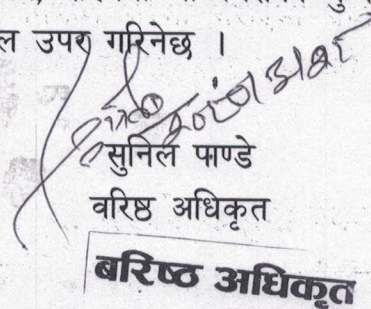 ल उपर गरिनेछ ।
सुनिल पाण्डे
वरिष्ठ अधिकृत
बरिष्ठ अधिकृत